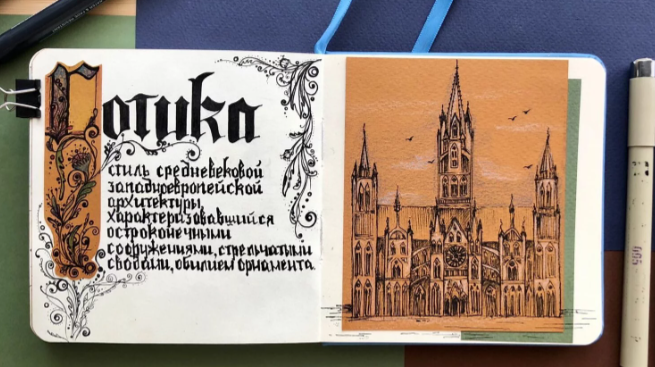 Готика
стиль средневековой
западноевропейской
архитектуры,
характеризовавшийся
остроконечными
сооружениями, стрельчатыми
сводами, обилием орнамента.
005